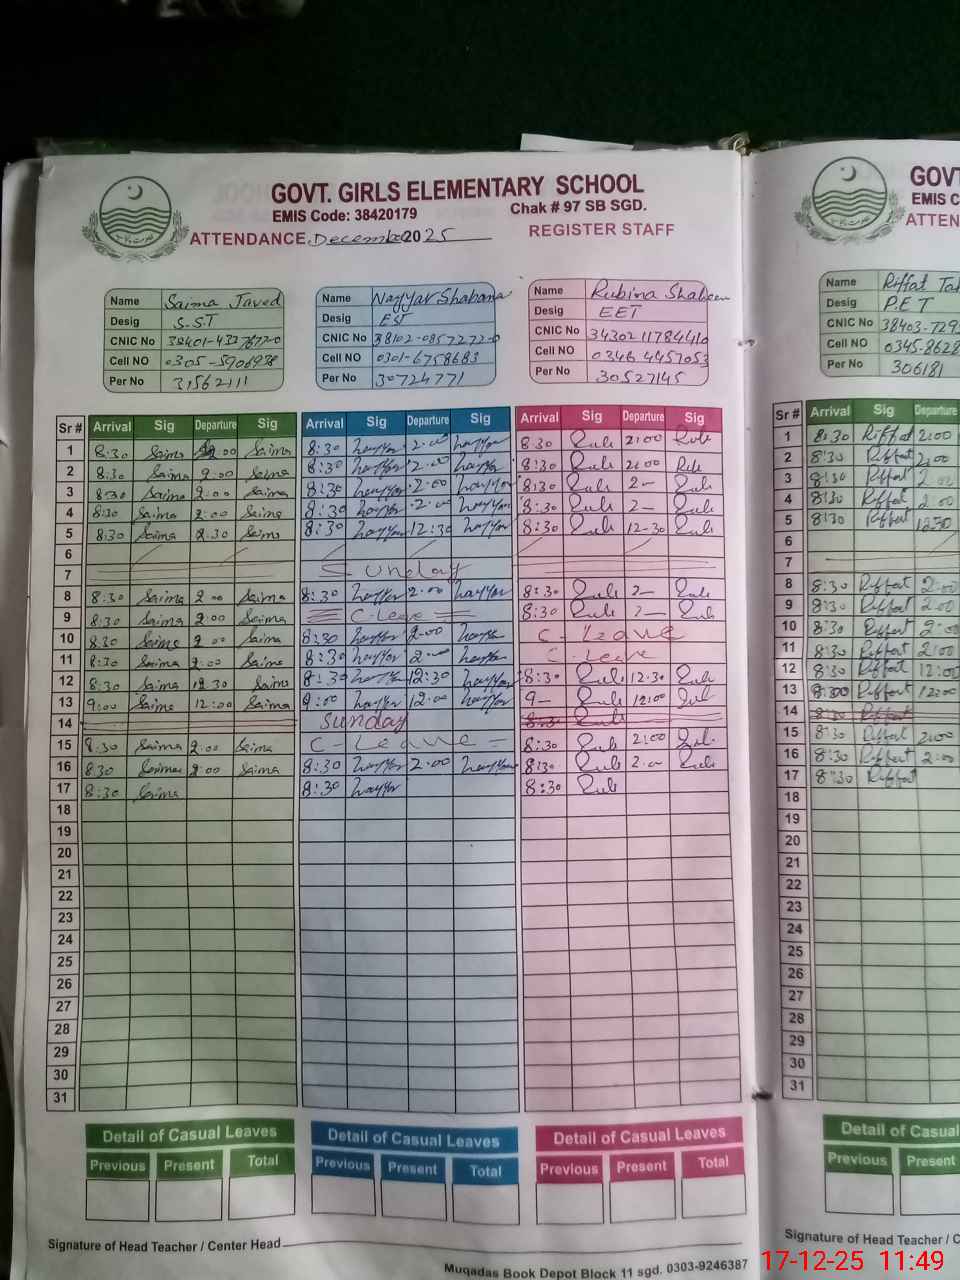 GOVT. GIRLS ELEMENTARY SCHOOL
EMIS Code: 38420179 Chak # 97 SB SGD.
ATTENDANCE December 2025 REGISTER STAFF
Name Saima Javed
Desig S.S.T
CNIC No
Cell NO 0305-5906938
Per No 31562111
Name Nayyar Shabana
Desig EST
CNIC NO 38102-0857272-0
Cell NO 0301-6758683
Per No 30724771
Name Rubina Shaheen
Desig EET
CNIC No 34302 11784410
Cell NO 0346 4457053
Per No 30527145
Sr # Arrival Sig Departure Sig Arrival Sig Departure Sig Arrival Sig Departure Sig
1 8:30 Saima 2:00 Saima 8:30 nayyar 2:00 nayyar 8:30 Rubi 2:00 Rubi
2 8:30 Saima 2:00 Saima 8:30 nayyar 2:00 nayyar 8:30 Rubi 2:00 Rubi
3 8:30 Saima 2:00 Saima 8:30 nayyar 2:00 nayyar 8:30 Rubi 2- Rubi
4 8:30 Saima 2:00 Saima 8:30 nayyar 2:00 nayyar 8:30 Rubi 2- Rubi
5 8:30 Saima 2:30 Saima 8:30 nayyar 12:30 nayyar 8:30 Rubi 12-30 Rubi
6
7 Sunday
8 8:30 Saima 2:00 Saima 8:30 nayyar 2:00 nayyar 8:30 Rubi 2- Rubi
9 8:30 Saima 2:00 Saima C-Leave 8:30 Rubi 2- Rubi
10 8:30 Saima 2:00 Saima 8:30 nayyar 2:00 nayyar C-Leave
11 8:30 Saima 2:00 Saima 8:30 nayyar 2:00 nayyar C-Leave
12 8:30 Saima 12:30 Saima 8:30 nayyar 12:30 nayyar 8:30 Rubi 12:30 Rubi
13 9:00 Saima 12:00 Saima 9:00 nayyar 12:00 nayyar 9- Rubi 12:00 Rubi
14 Sunday 8:30 Rubi
15 8:30 Saima 2:00 Saima C-Leave 8:30 Rubi 2:00 Rubi
16 8:30 Saima 2:00 Saima 8:30 nayyar 2:00 nayyar 8:30 Rubi 2:00 Rubi
17 8:30 Saima 8:30 nayyar 8:30 Rubi
18
19
20
21
22
23
24
25
26
27
28
29
30
31
Detail of Casual Leaves Detail of Casual Leaves Detail of Casual Leaves
Previous Present Total Previous Present Total Previous Present Total
Signature of Head Teacher / Center Head
Muqadas Book Depot Block 11 sgd. 0303-9246387
GOVT
EMIS C
ATTEN
Name Riffat Tah
Desig P.E.T
CNIC No 38403-729
Cell NO 0345-8628
Per No 306181
Sr # Arrival Sig Departure
1 8:30 Riffat 2:00
2 8:30 Riffat 2:00
3 8:30 Riffat 2:00
4 8:30 Riffat 2:00
5 8:30 Riffat 12:30
6
7
8 8:30 Riffat 2:00
9 8:30 Riffat 2:00
10 8:30 Riffat 2:00
11 8:30 Riffat 2:00
12 8:30 Riffat 12:00
13 Riffat 12:00
14 8:30 Riffat
15 8:30 Riffat 2:00
16 8:30 Riffat 2:00
17 8:30 Riffat
18
19
20
21
22
23
24
25
26
27
28
29
30
31
Detail of
Previous Present
Signature of Head Teacher / C
17-12-25 11:49